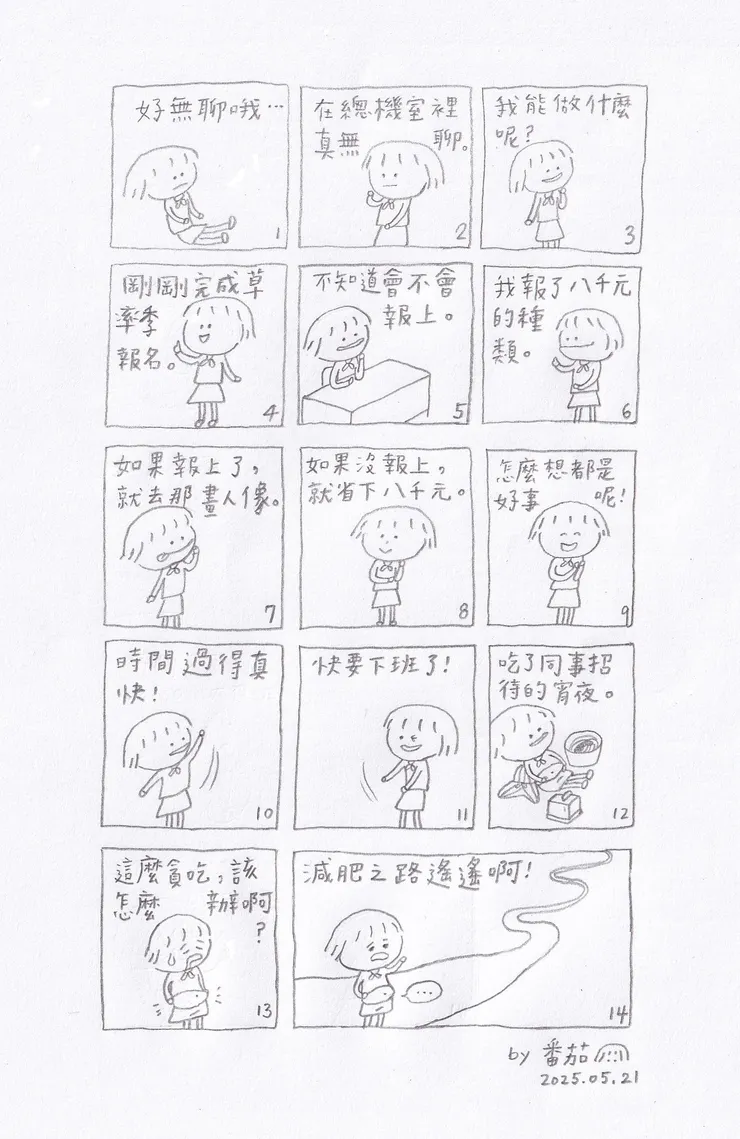 好無聊哦…
1
在總機室裡
真無聊。
2
我能做什麼
呢?
3
剛剛完成草
率季
報名。
4
不知道會不會
報上。
5
我報了八千元
的種
類。
6
如果報上了,
就去那畫人像。
7
如果沒報上,
就省下八千元。
8
怎麼想都是
好事呢!
9
時間過得真
快!
10
快要下班了!
11
吃了同事招
待的宵夜。
12
這麼貪吃,該
怎麼辦啊
?
13
減肥之路遙遙啊!
...
14
by 番茄
2025.05.21